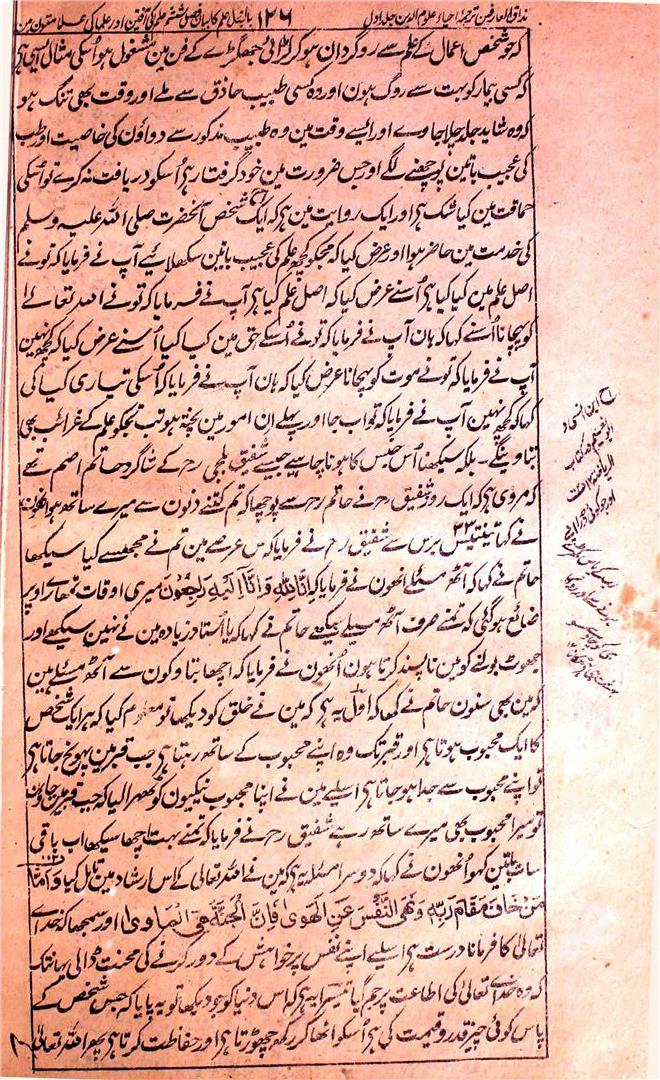 مذاق العارفین ترجمہ احیاء علوم الدین جلد اول ۱۲۶ باب اول علم کا بیان فصل ششم علم کی آفتین اور علما کی علامتون مین
کہ جو شخص اعمال کے علم سے روگردان ہو کر لڑائی جھگڑے کے فن مین مشغول ہو اُسکی مثال ایسی ہی
کہ کسی بیمار کو بہت سے روگ ہون اور وہ کسی طبیب حاذق سے ملے اور وقت بھی تنگ ہو
کہ وہ شاید جلد چلا جاوے اور ایسے وقت مین وہ طبیب مذکور سے دواؤن کی خاصیت اور طب
کی عجیب باتین پوچھنے لگے اور جس ضرورت مین خود گرفتار ہی اُسکو دریافت نہ کرے تو اُسکی
حماقت مین کیا شک ہی اور ایک روایت مین ہی کہ ایک شخص آنحضرت صلی اللہ علیہ وسلم
کی خدمت مین حاضر ہوا اور عرض کیا کہ مجھکو کچھ علم کی عجیب باتین سکھلائیے آپ نے فرمایا کہ تو نے
اصل علم مین کیا کیا ہی اُسنے عرض کیا کہ اصل علم کیا ہی آپ نے فرمایا کہ تو نے اللہ تعالے
کو پہچانا اُسنے کہا کہ ہان آپ نے فرمایا کہ تو نے اُسکے حق مین کیا کیا اُسنے عرض کیا کہ کچھ نہین
آپ نے فرمایا کہ تو نے موت کو پہچانا عرض کیا کہ ہان آپ نے فرمایا کہ اُسکی تیاری کیا کی
کہا کہ کچھ نہین آپ نے فرمایا کہ تو اب جا اور پہلے ان امور مین پختہ ہو تب تجکو علم کے غرائب بھی
بتاوینگے۔ بلکہ سیکھنا اُس جنس کا ہونا چاہیے جیسے شقیق بلخی رحمہ کے شاگرد حاتم اصم تھے
کہ مروی ہی کہ ایک روز شقیق رحمہ نے حاتم رحمہ سے پوچھا کہ تم کتنے دنون سے میرے ساتھ ہو اُنھون
نے کہا تینتیس ۳۳ برس سے شقیق رحمہ نے فرمایا کہ اس عرصے مین تم نے مجھسے کیا سیکھا
حاتم نے کہا کہ آٹھ مسئلے اُنھون نے فرمایا کہ اِنَّا لِلّٰہِ وَاِنَّا اِلَیْہِ رَاجِعُوْنَ میری اوقات تمھارے اوپر
ضائع ہو گئی کہ تمنے صرف آٹھ مسئلے سیکھے حاتم نے کہا کہ یا اُستاد زیادہ مین نے نہین سیکھے اور
جھوٹ بولنے کو مین ناپسند کرتا ہون اُنھون نے فرمایا کہ اچھا بتاو کون سے آٹھ مسئلے ہین
کہ مین بھی سنون حاتم نے کہا کہ اول یہ ہی کہ مین نے خلق کو دیکھا تو معلوم کیا کہ ہر ایک شخص
کا ایک محبوب ہوتا ہی اور قبر تک وہ اپنے محبوب کے ساتھ رہتا ہی جب قبر مین پہونچ جاتا ہی
تو اپنے محبوب سے جدا ہو جاتا ہی اسلیے مین نے اپنا محبوب نیکیون کو ٹھہرا لیا کہ جب قبر مین جاون
تو میرا محبوب بھی میرے ساتھ رہے شقیق رحمہ نے فرمایا کہ تمنے بہت اچھا سیکھا اب باقی
سات باتین کہو اُنھون نے کہا کہ دوسرا مسئلہ یہ ہی کہ مین نے اللہ تعالیٰ کے اس ارشاد مین تامل کیا وَاَمَّا
مَنْ خَافَ مَقَامَ رَبِّہٖ وَنَھَی النَّفْسَ عَنِ الْھَوٰی فَاِنَّ الْجَنَّۃَ ھِیَ الْمَاوٰی اور سمجھا کہ خداے
تعالیٰ کا فرمانا درست ہی اسلیے اپنے نفس پر خواہش کے دور کرنے کی محنت ڈالی یہانتک
کہ وہ خداے تعالیٰ کی اطاعت پر جم گیا تیسرا یہ ہی کہ اس دنیا کو جو دیکھا تو یہ پایا کہ جس شخص کے
پاس کوئی چیز قدر و قیمت کی ہی اُسکو اٹھا کر رکھ چھوڑتا ہی اور حفاظت کرتا ہی پھر اللہ تعالیٰ